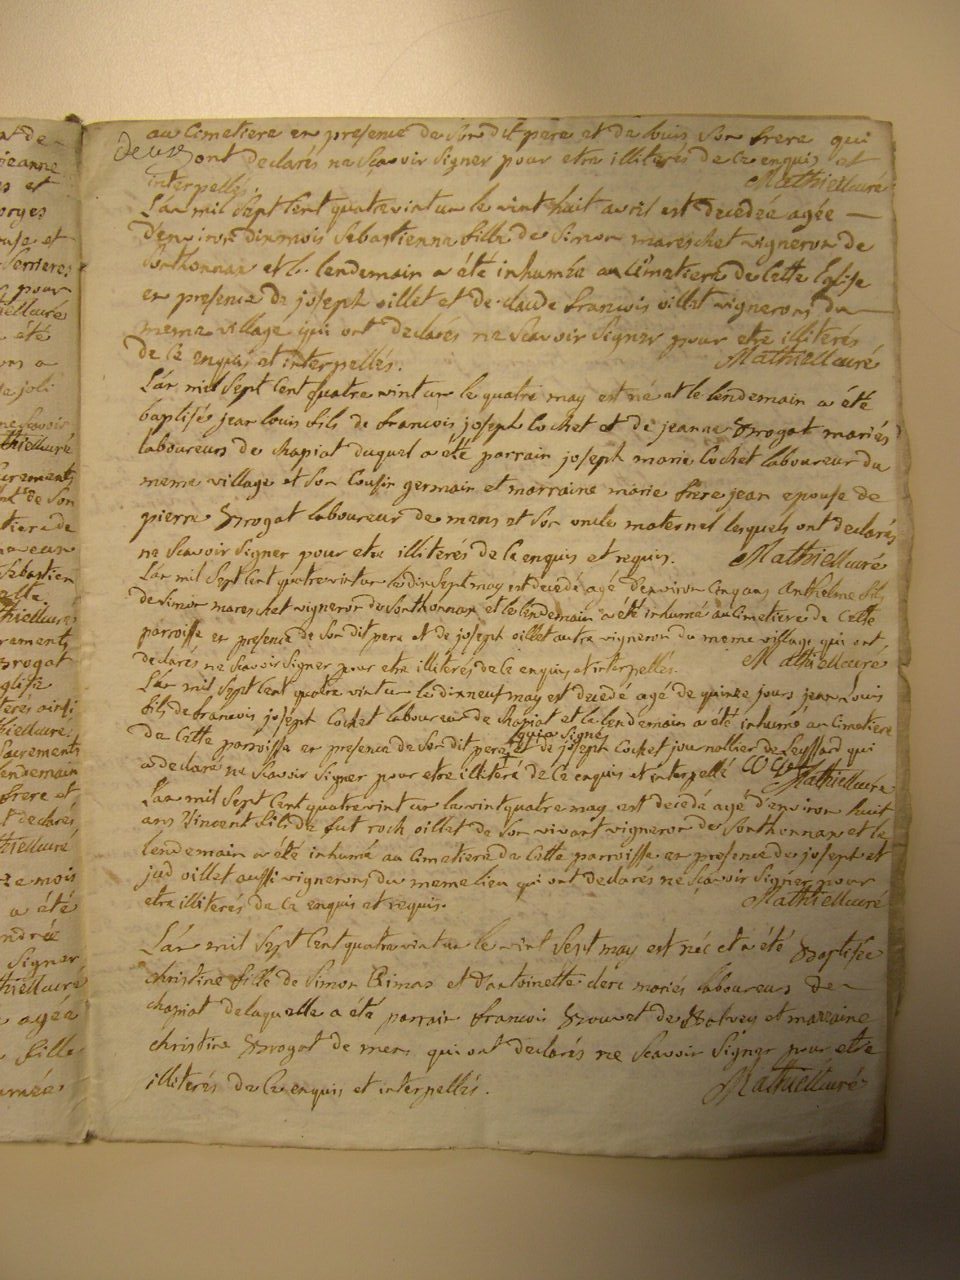 nt de
jeanne
et
orges
et
pour
été
a
joli
thiellcuré
sacrements
de son
Sebastien
sacrements
brogat
eglise
sacrements
lendemain
frere et
declarés
mois
a été
Signer
thiellcuré
agée
fille
au Cimetiere en presence de Son dit pere et de louis Son frere qui
deux ont declarés ne Scavoir Signer pour etre illiterés de ce enquis et
interpellés. Mathiellcuré
L'an mil Sept Cent quatrevint un le vint huit avril est decedée agée
D'environ dixmois Sebastienne fille de Simon mareschet vigneron de
Sonthonnax et le lendemain a été inhumée au Cimetiere de Cette Eglise
en presence de joseph oillet et de claude francois oillet vignerons du
meme village qui ont declarés ne Scavoir Signer pour etre illiterés
de Ce enquis et interpellés. Mathiellcuré
L'an mil Sept Cent quatre vint un le quatre may est né et le lendemain a été
baptisé jean louis fils de francois joseph Cochet et de jeanne Brogat mariés
laboureurs de chapiat duquel a été parrain joseph marie Cochet laboureur du
meme village et Son Cousin germain et marraine marie frere jean epouse de
pierre Brogat laboureur de mens et Son oncle maternel lesquels ont declarés
ne Scavoir Signer pour etre illiterés de Ce enquis et requis. Mathiellcuré
L'an mil Sept Cent quatrevint un le dix Sept may est decedé agé D'environ Cinq ans Anthelme fils
de Simon mareschet vigneron de Sonthonnax et le lendemain a été inhumé au Cimetiere de Cette
parroisse en presence de Son dit pere et de joseph oillet autre vigneron du meme village qui ont
declaré ne Scavoir Signer pour etre illiterés de Ce enquis et interpellés. Mathiellcuré
L'an mil Sept Cent quatre vint un le dix neuf may est decedé agé de quinze jours jean Louis
fils de francois joseph Cochet laboureur de chapiat et le lendemain a été inhumé au Cimetiere
qui a Signé
de Cette parroisse en presence de Son dit pere et de joseph Cochet journallier de Leyssard qui
a declaré ne Scavoir Signer pour etre illiteré de Ce enquis et interpellé Mathiellcuré
L'an mil Sept Cent quatrevint un le vint quatre may est decedé agé d'environ huit
ans Vincent fils de fut roch oillet de Son vivant vigneron de Sonthonnax et le
lendemain a été inhumé au Cimetiere de Cette parroisse en presence de joseph et
jud oillet aussi vignerons du meme lieu qui ont declarés ne Scavoir Signer pour
etre illiterés de Ce enquis et requis. Mathiellcuré
L'an mil Sept Cent quatre vint un le vint Sept may est neé et a été Baptisée
christine fille de Simon Rimas et d'antoinette clerc mariés laboureurs de
chapiat de laquelle a été parrain francois Brouvet de et marraine
christine Brogat de mens qui ont declarés ne Scavoir Signer pour etre
illiterés de Ce enquis et interpellés. Mathiellcuré